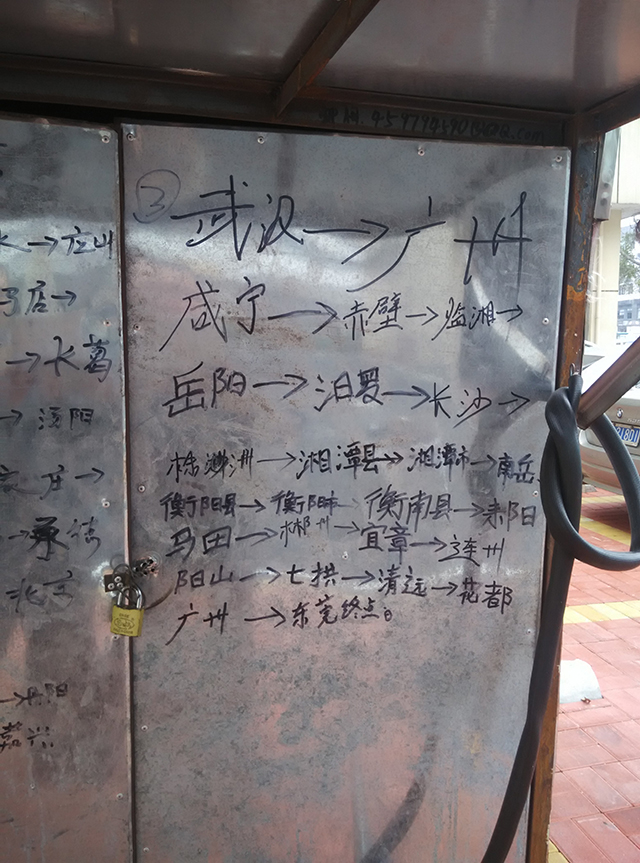 ③ 武汉→广州
咸宁→赤壁→临湘→
岳阳→汨罗→长沙→
株洲→湘潭县→湘潭市→南岳
衡阳县→衡阳市→衡南县→耒阳
马田→郴州→宜章→连州
阳山→七拱→清远→花都
广州→东莞终点。
→庄山
店→
→长葛
阳
庄→
→承德
北京
嘉兴